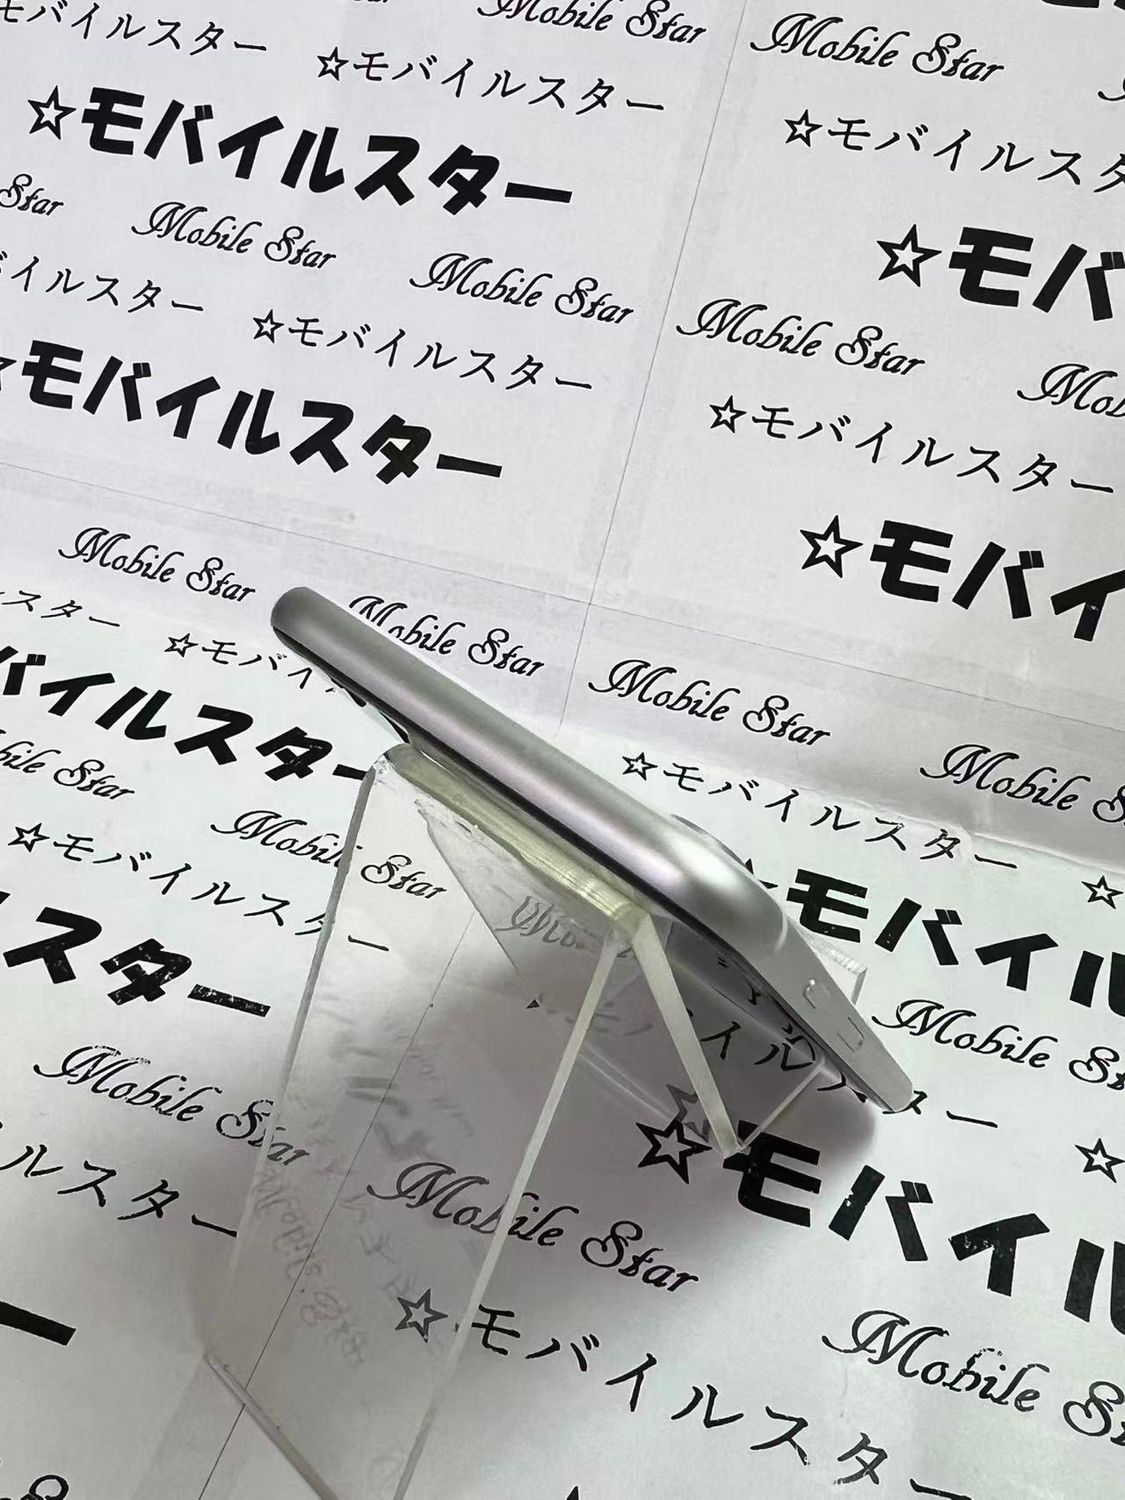 モバイルスター ☆モバイルスター
Mobile Star Mobile Star
☆モバイルスター
☆モバイルスター
Star Mobile Star Mobile Star
イルスター ☆モバイルスター
モバイルスター
Mobile Star
☆モバイルスター
☆モバ
☆モバイ
Mobile Star Mobile Star
スター ☆モバイ
バイルスター
Mobile Star Mobile
☆モバイルスター ☆
モバイル
Star Mobile Star
☆モバイルスター
スター
Mobile
Mobile Star
ルスター
Mobile Star
☆モバイル
ー ☆
Mobile
☆モバイルスター
ー